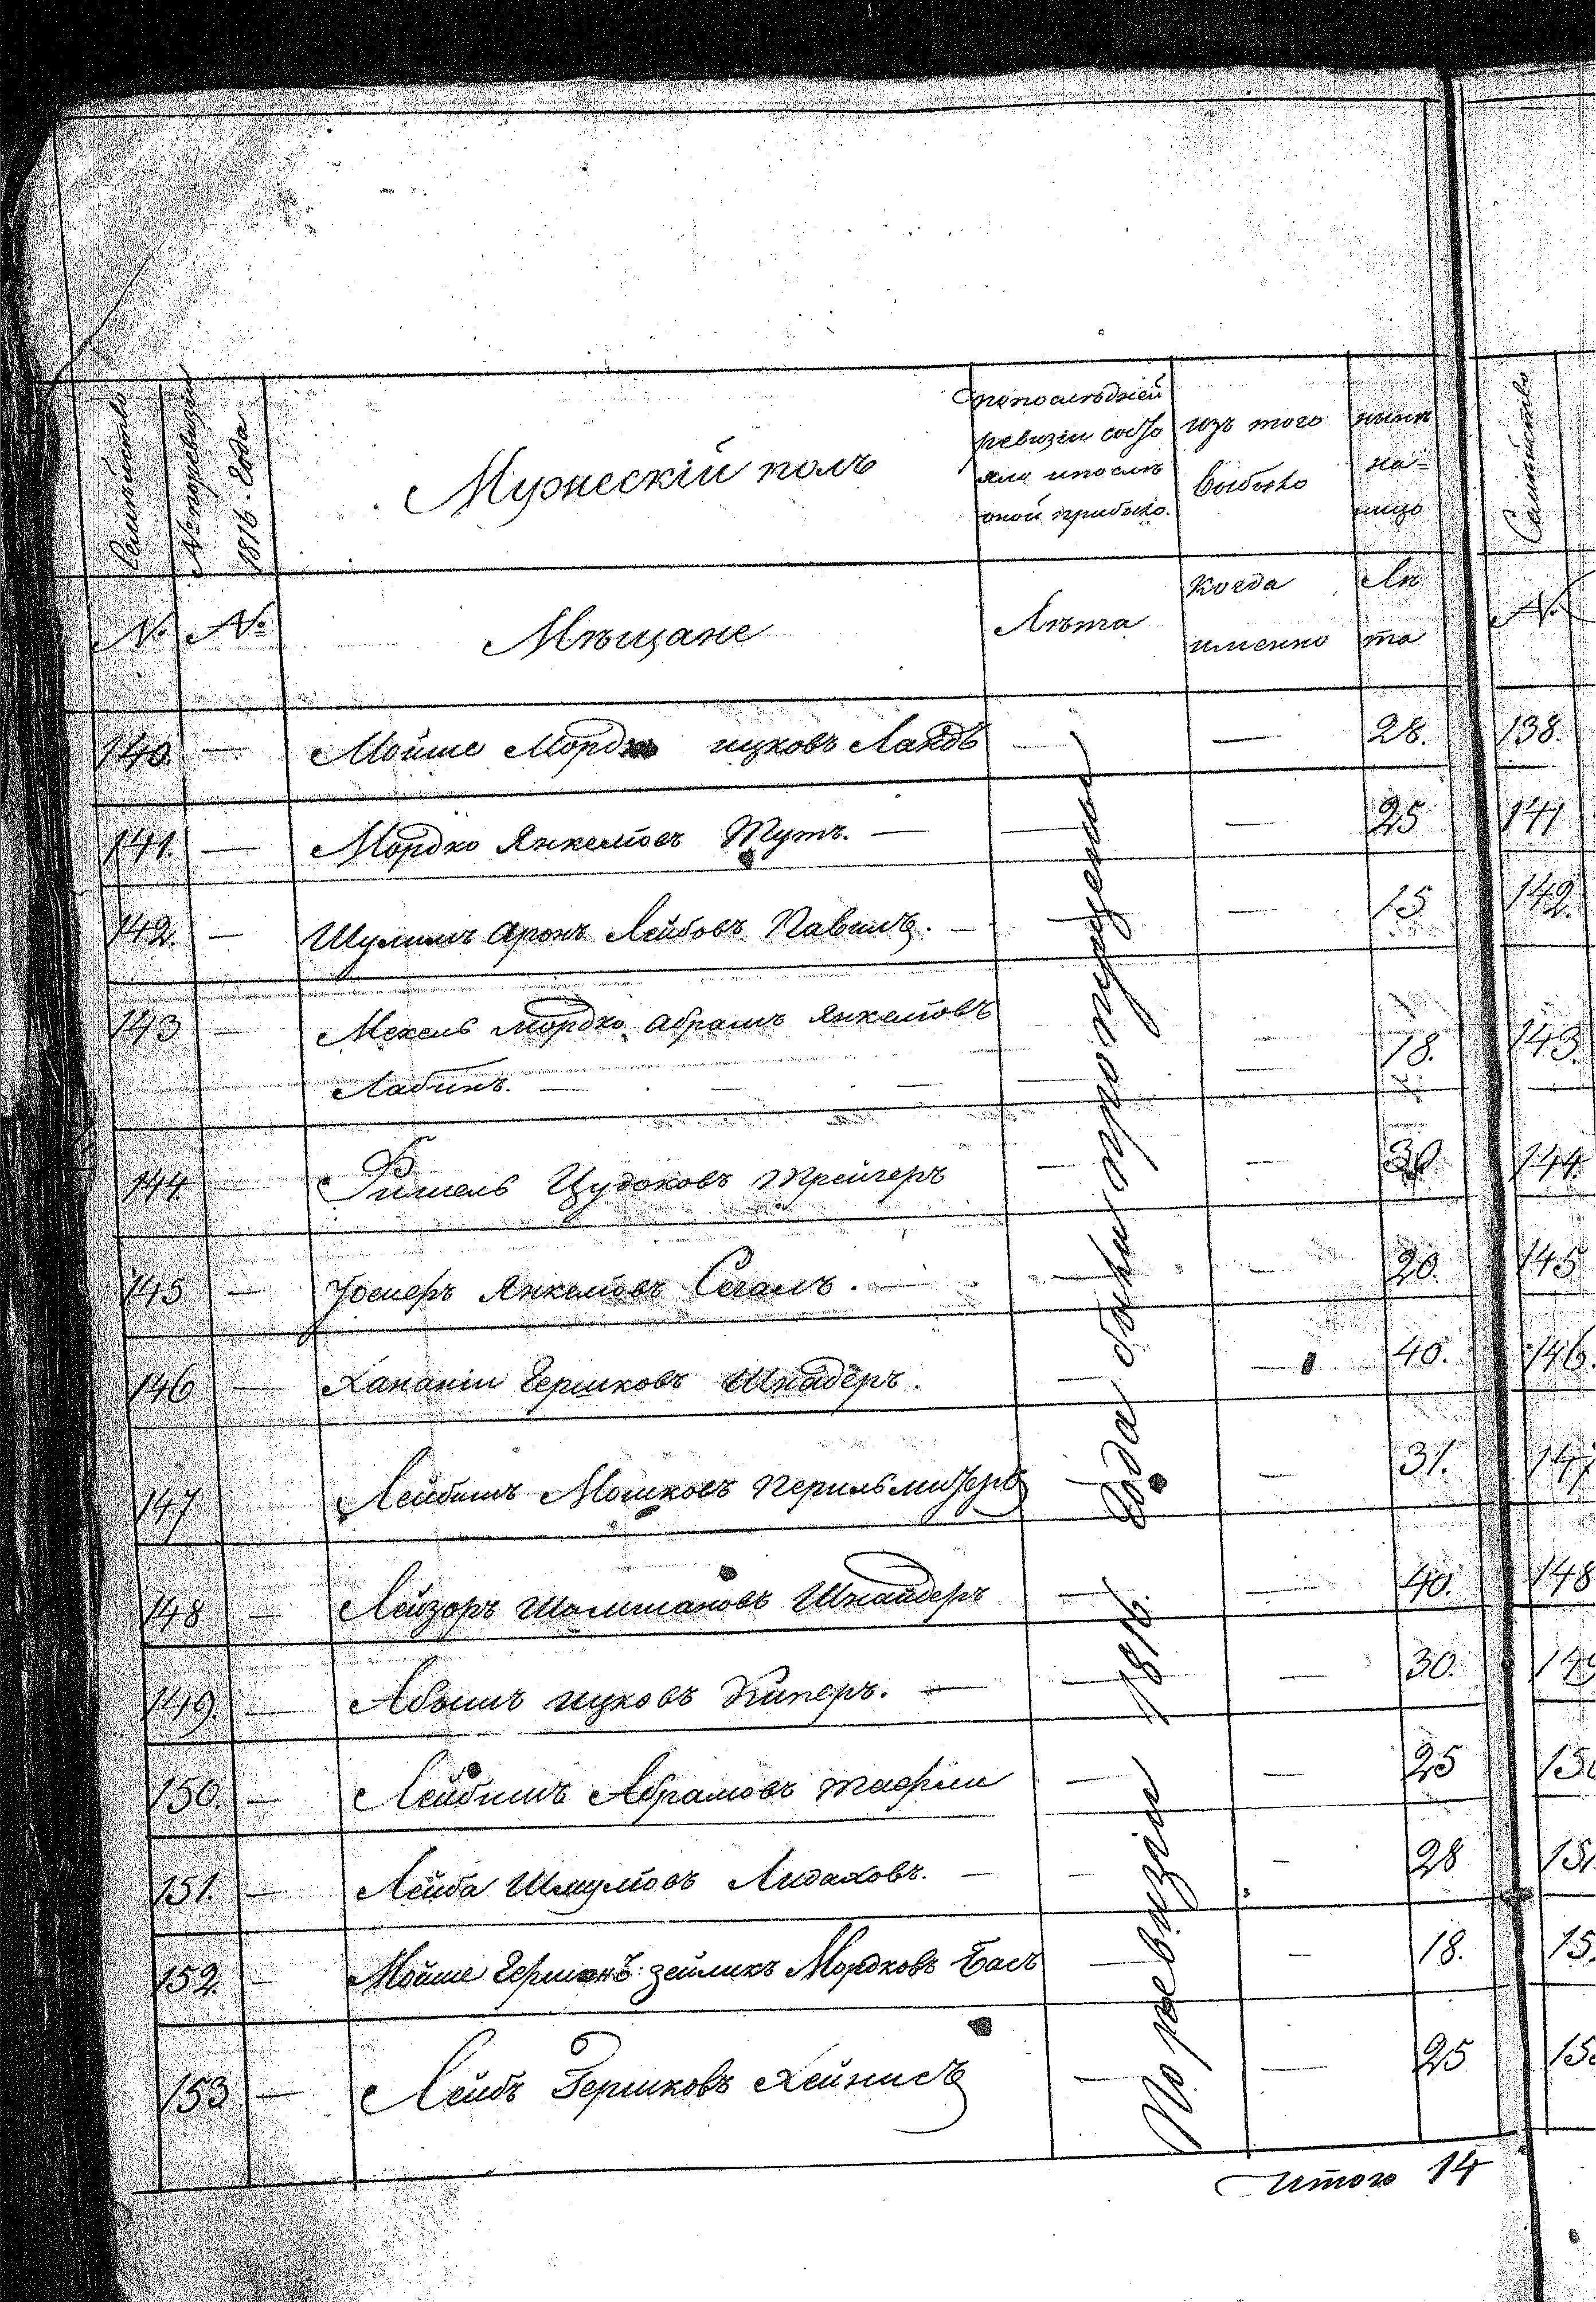 Семѣйство
№ по ревизіи
1816. Года
Мужескій полъ
По последней
ревизіи состо
яло и после
оной прибыло.
изъ того
выбыло
нынѣ
на=
лицо
Семѣйство
№ №
Мѣщане
Лѣта
когда
именно
Лѣ
та
№
По ревизіи 1816. года были пропущены
140. — Мойше Мордко ицковъ Ландъ — — 28. 138.
141. — Мордко Янкелювъ Тутъ. — — — 25 141
142. — Шулимъ Аронъ Лейбовъ — — — 15 142.
143 — Мехель Мордко Абрамъ Янкелювъ —
Лабинъ. — — — — — 18. 143.
144 — Фишель Цудоковъ Трейгеръ — — 30 144.
145 — Янкелювъ Сегалъ. — — — 20. 145
146 — Хананіи Гершковъ Шнадеръ. — — 40. 146.
147 Лейбишъ Мошковъ Перильмутеръ — — 31. 147
148 — Лейзоръ Шаншановъ Шнайдеръ — — 40. 148
149. — Абошъ ицковъ Киперъ. — — — 30. 149
150. — Лейбишъ Абрамовъ — — 25 150
151. — Лейба Шмулювъ Лидаховъ. — — — 28 151
152. — Мойше Гершонъ: зейликъ Мордковъ Басъ — — 18. 15
153 — Лейбъ Гершковъ Хейнисъ — — 25 15
Итого 14